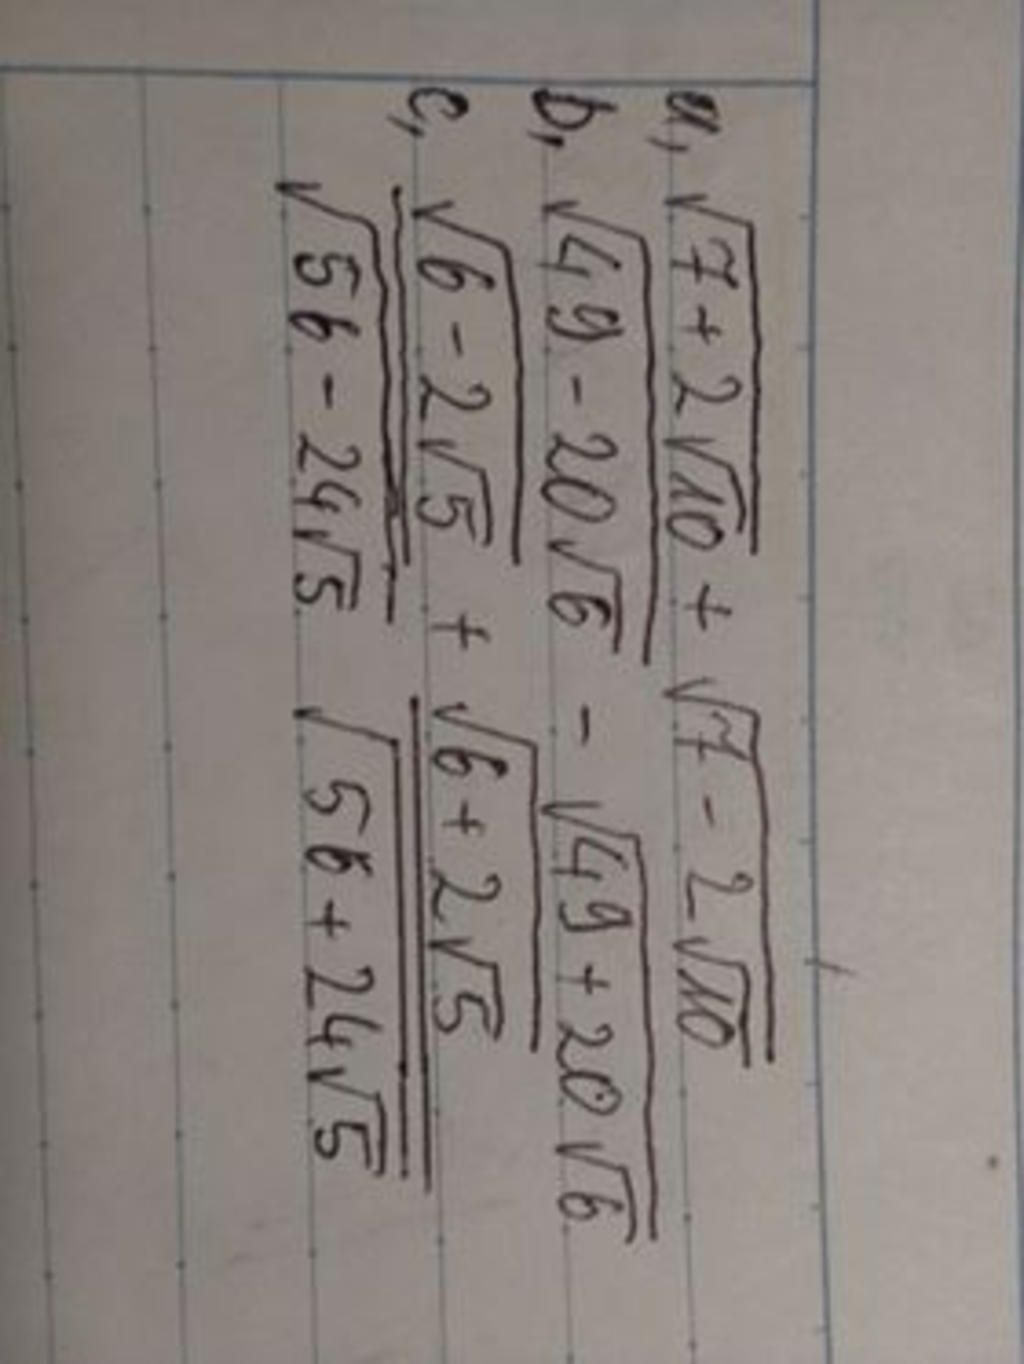 a, √(7 + 2√10) + √(7 - 2√10)
b, √(49 - 20√6) - √(49 + 20√6)
c, √(6 - 2√5) / √(56 - 24√5) + √(6 + 2√5) / √(56 + 24√5)